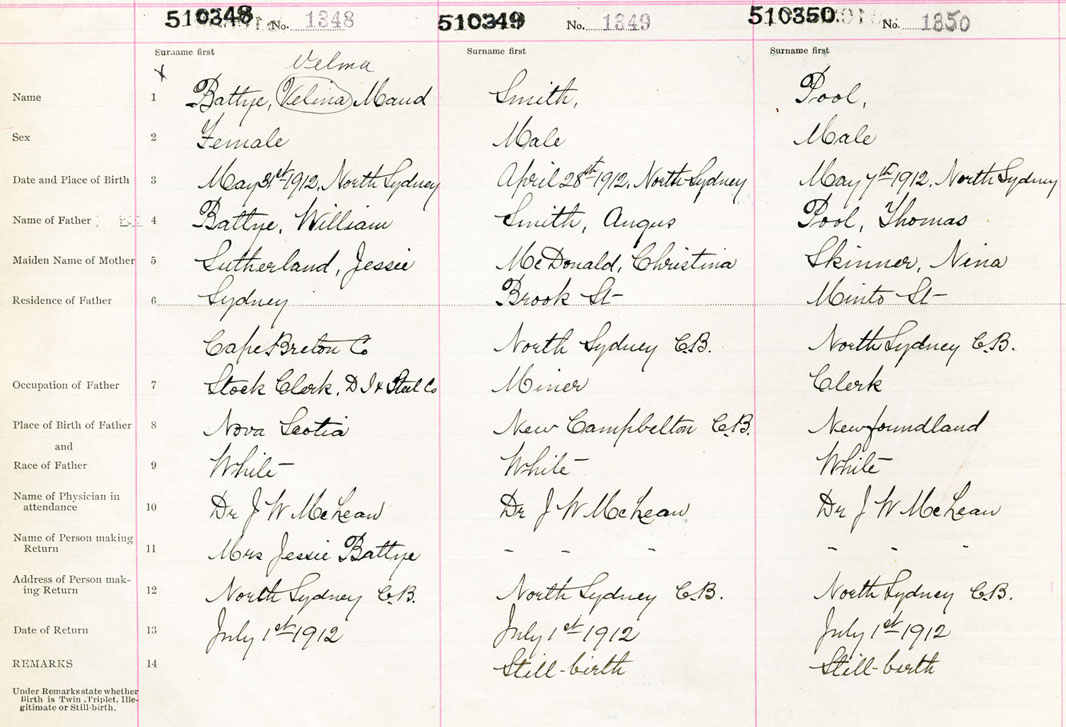 510348 No. 1348 510349 No. 1349 510350 No. 1350
Surname first Surname first Surname first
Velma
x
Name 1 Battye, Velina Maud Smith, Pool,
Sex 2 Female Male Male
Date and Place of Birth 3 May 31st 1912, North Sydney April 28th 1912, North Sydney May 7th 1912, North Sydney
Name of Father 4 Battye, William Smith, Angus Pool, Thomas
Maiden Name of Mother 5 Sutherland, Jessie McDonald, Christina Skinner, Nina
Residence of Father 6 Sydney Brook St Minto St
Cape Breton Co North Sydney C.B. North Sydney C.B.
Occupation of Father 7 Stock Clerk, D I & Steel Co Miner Clerk
Place of Birth of Father 8 Nova Scotia New Campbelton C.B. Newfoundland
and
Race of Father 9 White White White
Name of Physician in
attendance 10 Dr J W McLean Dr J W McLean Dr J W McLean
Name of Person making
Return 11 Mrs Jessie Battye - - - - - -
Address of Person mak-
ing Return 12 North Sydney C.B. North Sydney C.B. North Sydney C.B.
Date of Return 13 July 1st 1912 July 1st 1912 July 1st 1912
REMARKS 14 Still-birth Still-birth
Under Remarks state whether
Birth is Twin, Triplet, Ille-
gitimate or Still-birth.